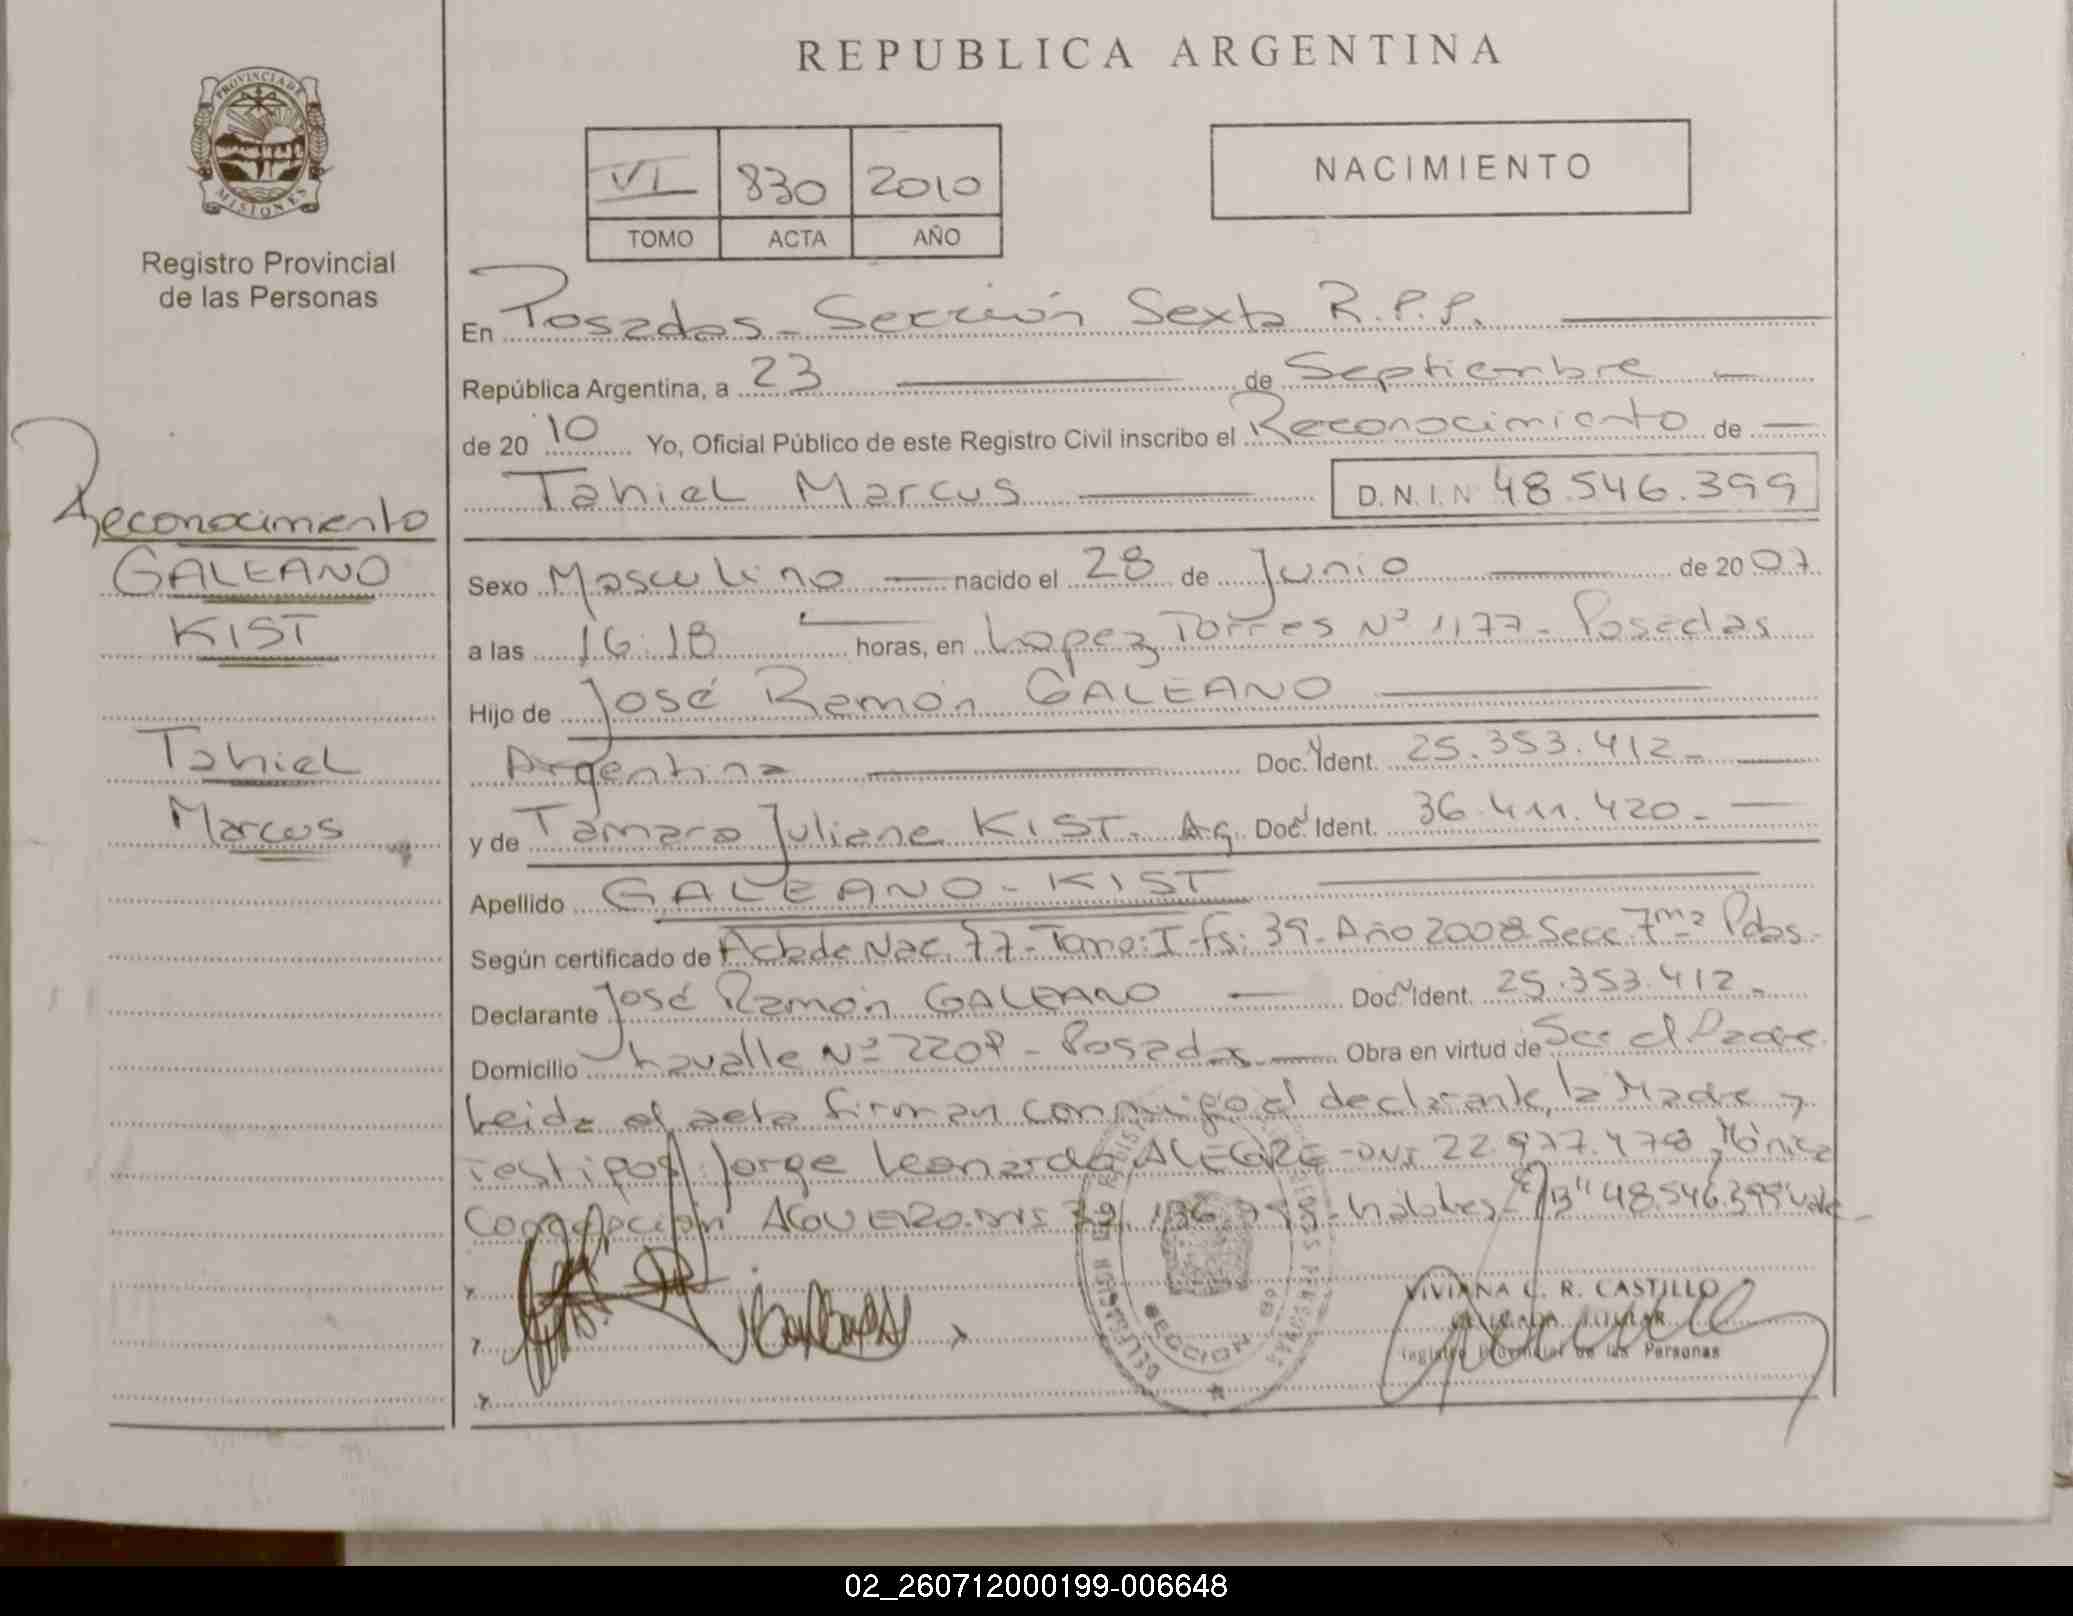 REPUBLICA ARGENTINA
PROVINCIA DE
MISIONES
Registro Provincial
de las Personas
VI 830 2010
TOMO ACTA AÑO
NACIMIENTO
En Posadas - Sección Sexta R.P.P.
República Argentina, a 23 de Septiembre
de 20 10 Yo, Oficial Público de este Registro Civil inscribo el Reconocimiento de
Tahiel Marcus D.N.I.N 48.546.399
Reconocimiento
GALEANO
KIST
Tahiel
Marcus
Sexo Masculino nacido el 28 de Junio de 20 07
a las 16:18 horas, en Lopez Torres Nº 1177 - Posadas
Hijo de José Ramón GALEANO
Argentina Doc. Ident. 25.353.412
y de Tamara Juliane KIST. Ag. Doc. Ident. 36.411.420
Apellido GALEANO - KIST
Según certificado de Acta de Nac. 77 - Tomo: I - fs: 39 - Año 2008 Secc. 7ma Pdas.
Declarante José Ramón GALEANO Doc. Ident. 25.353.412
Domicilio Lavalle Nº 2208 - Posadas Obra en virtud de Ser el Padre
Leida el acta firman conmigo el declarante, la Madre y
testigos: Jorge Leonardo ALEGRE - DNI 22.977.478, Mónica
AGUERO. DNI habiles - "48.546.399" Vale
SECCION
VIVIANA C. R. CASTILLO
DELEGADA TITULAR
Registro Provincial de las Personas
02_260712000199-006648